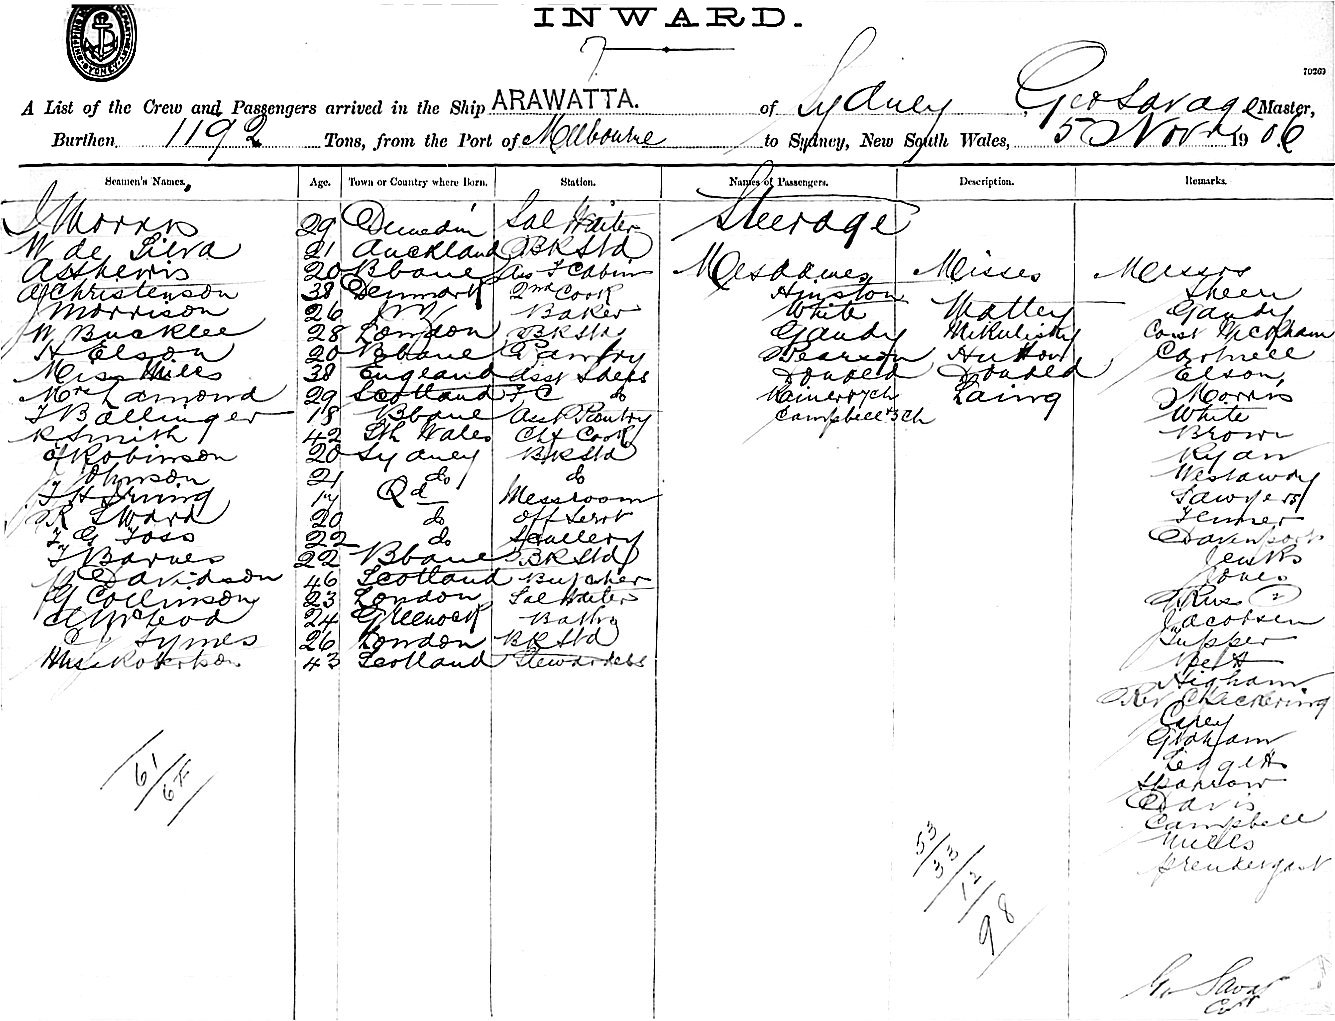 INWARD.
7
70269
A List of the Crew and Passengers arrived in the Ship ARAWATTA. of Sydney Geo Savage Master,
Burthen 1192 Tons, from the Port of Melbourne to Sydney, New South Wales, 5 Novr 1906
Seamen's Names. Age. Town or Country where Born. Station. Names of Passengers. Description. Remarks.
J Morris 29 Dunedin Sal Waiter
W de Silva 21 Auckland BR Std
20 Bbane
A Christenson 38 Denmark 2nd Cook
J Morrison 26 Baker
W Bucklee 28 London BR Std
H Elson 20 Bbane Pantry
Miss Miles 38 England
Mrs Lamond 29 Scotland F C do
T Ballinger 18 Bbane Asst Pantry
R Smith 42 Sth Wales Chf Cook
J Robinson 20 Sydney BR Std
J Johnson 21 do do
T H Irving 17 Qd Messroom
R S Ward 20 do Off Servt
T G Foss 22 do Scullery
T Barnes 22 Bbane BR Std
Davidson 46 Scotland Butcher
G Collinson 23 London Sal Waiter
A McLeod 24 Greenock
C Symes 26 London BR Std
Mrs Robertson 43 Scotland Stewardess
61/62
Steerage
Mesdames Misses Messrs
Hinston Sheer
White Watley Gandy
Gandy Const McRham
Pearson Hutton Cartnell
Donded Donded Elson
7ch Laing Morris
Campbell 3ch White
Brown
Ryan
Westaway
Sawyers
Fenner
Davenport
Jenks
Jones
Russ (2)
Jacobsen
Tupper
Higham
Rev Chickering
Carey
Graham
Leggett
Sparrow
Davis
Campbell
Mills
Prendergast
53/33/12/98
Geo Savage